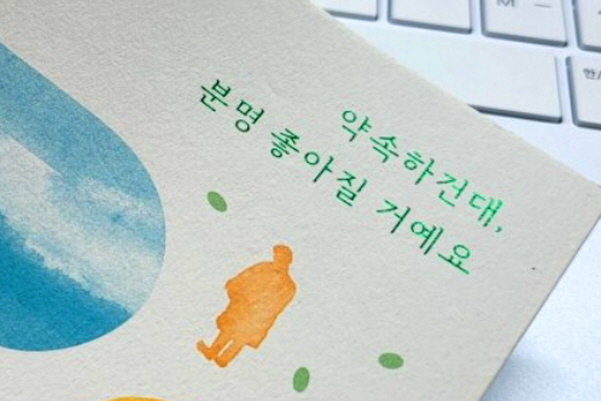 약속하건대,
분명 좋아질 거예요
M
한/